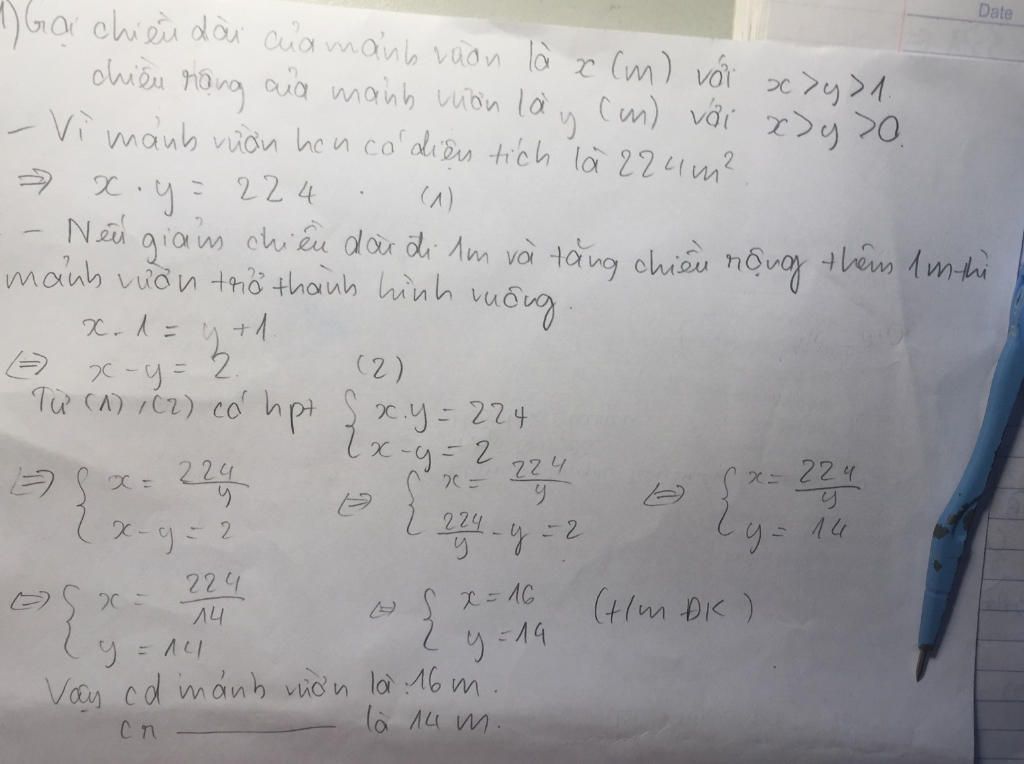 Date
1) Gọi chiều dài của mảnh vườn là x (m) với x > y > 1.
chiều rộng của mảnh vườn là y (m) với x > y > 0.
- Vì mảnh vườn hcn có diện tích là 224m²
⇒ x . y = 224 . (1)
- Nếu giảm chiều dài đi 1m và tăng chiều rộng thêm 1m thì
mảnh vườn trở thành hình vuông.
x - 1 = y + 1
⇔ x - y = 2. (2)
Từ (1), (2) có hpt { x.y = 224
x - y = 2
⇔ { x = 224/y ⇔ { x = 224/y ⇔ { x = 224/y
x - y = 2 224/y - y = 2 y = 14
⇔ { x = 224/14 ⇔ { x = 16 (t/m ĐK)
y = 14 y = 14
Vậy cd mảnh vườn là : 16 m.
cr ——— là 14 m.